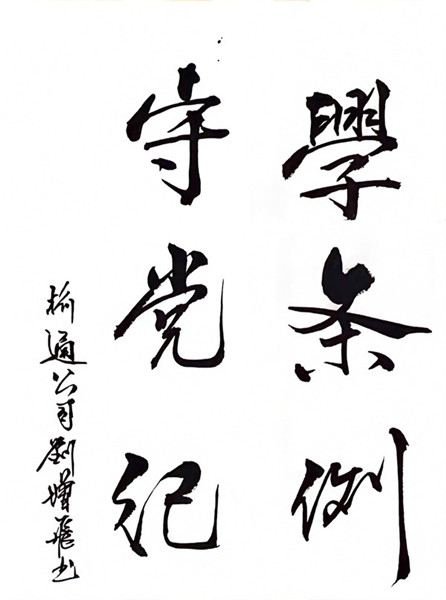 學条例
守党纪
榆通公司劉增飛书